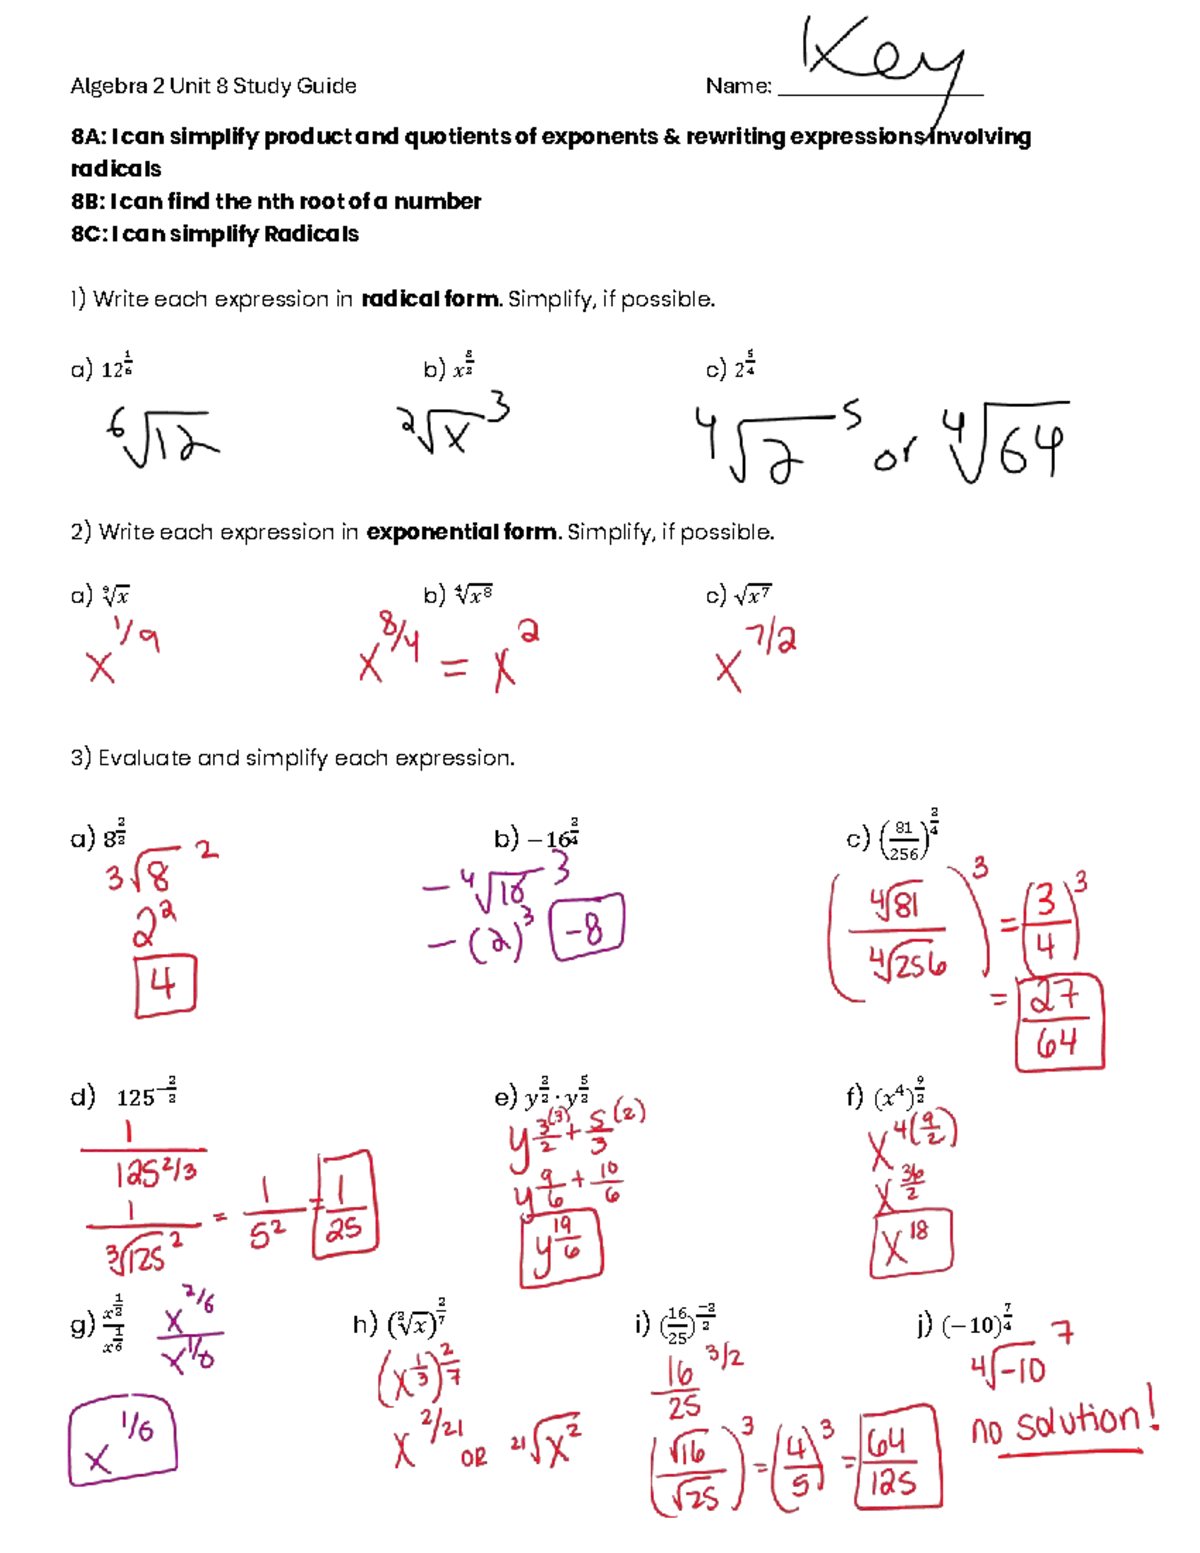 Key
Algebra 2 Unit 8 Study Guide Name:
8A: I can simplify product and quotients of exponents & rewriting expressions involving
radicals
8B: I can find the nth root of a number
8C: I can simplify Radicals
1) Write each expression in radical form. Simplify, if possible.
a) 12^(1/6) b) x^(3/2) c) 2^(5/4)
⁶√12 ²√x ³ ⁴√2 ⁵ or ⁴√64
2) Write each expression in exponential form. Simplify, if possible.
a) ⁹√x b) ⁴√x⁸ c) √x⁷
x^(1/9) x^(8/4) = x² x^(7/2)
3) Evaluate and simplify each expression.
a) 8 b) −16 c) (81/256)
³√8 ² −⁴√16 ³ (⁴√81/⁴√256)³ = (3/4)³
2² −(2)³ -8 = 27/64
4
d) 125 e) y · y f) (x⁴)^(9/2)
1/125^(2/3) y^(3(3)/2 + 5(2)/3) x^(4(9/2))
1/³√125 ² = 1/5² = 1/25 y^(9/6 + 10/6) x^(36/2)
y^(19/6) x^18
g) x/x^(1/6) x^(2/6)/x^(1/6) h) (³√x)^(2/7) i) (16/25) j) (−10)^(7/4)
(x^(1/3))^(2/7) 16/25 ^(3/2) ⁴√-10 ⁷
x^(1/6) x^(2/21) OR ²¹√x² (√16/√25)³ = (4/5)³ = 64/125 no solution!